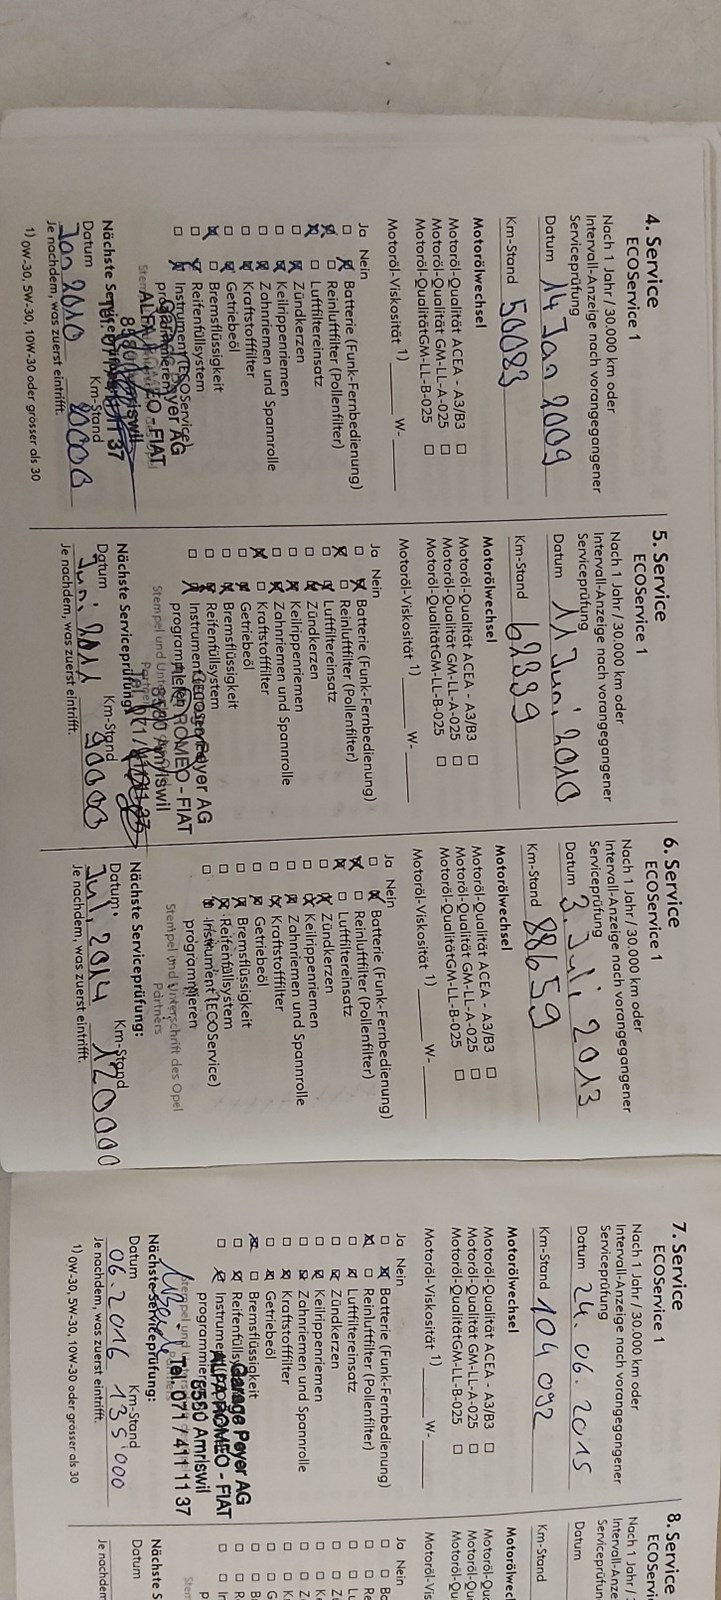 4. Service
ECOService 1
Nach 1 Jahr / 30.000 km oder
Intervall-Anzeige nach vorangegangener
Serviceprüfung
Datum 14 Jan 2009
Km-Stand 50083
Motorölwechsel
Motoröl-Qualität ACEA - A3/B3 □
Motoröl-Qualität GM-LL-A-025 □
Motoröl-QualitätGM-LL-B-025 □
Motoröl-Viskosität 1) W-
Ja Nein
Batterie (Funk-Fernbedienung)
Reinluftfilter (Pollenfilter)
Luftfiltereinsatz
Zündkerzen
Keilrippenriemen
Zahnriemen und Spannrolle
Kraftstofffilter
Getriebeöl
Bremsflüssigkeit
Reifenfüllsystem
Instrument (ECOService)
ALFA ROMEO - FIAT
Datum Km-Stand
Jan 2010
Je nachdem, was zuerst eintrifft.
1) 0W-30, 5W-30, 10W-30 oder grösser als 30
5. Service
ECOService 1
Nach 1 Jahr / 30.000 km oder
Intervall-Anzeige nach vorangegangener
Serviceprüfung
Datum 11 Juni 2010
Km-Stand
Motorölwechsel
Motoröl-Qualität ACEA - A3/B3 □
Motoröl-Qualität GM-LL-A-025 □
Motoröl-QualitätGM-LL-B-025 □
Motoröl-Viskosität 1) W-
Ja Nein
Batterie (Funk-Fernbedienung)
Reinluftfilter (Pollenfilter)
Luftfiltereinsatz
Zündkerzen
Keilrippenriemen
Zahnriemen und Spannrolle
Kraftstofffilter
Getriebeöl
Bremsflüssigkeit
Reifenfüllsystem
ROMEO - FIAT
8580 Amriswil
Nächste Serviceprüfung:
Datum Km-Stand
Juni 2011 90000
Je nachdem, was zuerst eintrifft.
6. Service
ECOService 1
Nach 1 Jahr / 30.000 km oder
Intervall-Anzeige nach vorangegangener
Serviceprüfung
Datum 3. Juli 2013
Km-Stand 88659
Motorölwechsel
Motoröl-Qualität ACEA - A3/B3 □
Motoröl-Qualität GM-LL-A-025 □
Motoröl-QualitätGM-LL-B-025 □
Motoröl-Viskosität 1) W-
Ja Nein
Batterie (Funk-Fernbedienung)
Reinluftfilter (Pollenfilter)
Luftfiltereinsatz
Zündkerzen
Keilrippenriemen
Zahnriemen und Spannrolle
Kraftstofffilter
Getriebeöl
Bremsflüssigkeit
Reifenfüllsystem
Instrument (ECOService)
programmieren
Stempel und Unterschrift des Opel
Partners
Nächste Serviceprüfung:
Datum Km-Stand
Juli 2014 120000
Je nachdem, was zuerst eintrifft.
7. Service
ECOService 1
Nach 1 Jahr / 30.000 km oder
Intervall-Anzeige nach vorangegangener
Serviceprüfung
Datum 24. 06. 2015
Km-Stand 104 092
Motorölwechsel
Motoröl-Qualität ACEA - A3/B3 □
Motoröl-Qualität GM-LL-A-025 □
Motoröl-QualitätGM-LL-B-025 □
Motoröl-Viskosität 1) W-
Ja Nein
Batterie (Funk-Fernbedienung)
Reinluftfilter (Pollenfilter)
Luftfiltereinsatz
Zündkerzen
Keilrippenriemen
Zahnriemen und Spannrolle
Kraftstofffilter
Getriebeöl
Bremsflüssigkeit
Garage Peyer AG
ALFA ROMEO - FIAT
8580 Amriswil
Tel. 071 / 411 11 37
Nächste Serviceprüfung:
Datum Km-Stand
06. 2016 135'000
Je nachdem, was zuerst eintrifft.
1) 0W-30, 5W-30, 10W-30 oder grösser als 30
8. Service
ECOServic
Nach 1 Jahr / 3
Intervall-Anze
Serviceprüfun
Datum
Km-Stand
Motorölwecl
Motoröl-Quc
Motoröl-Qu
Motoröl-Vis
Ja Nein
Nächste S
Datum
Je nachdem